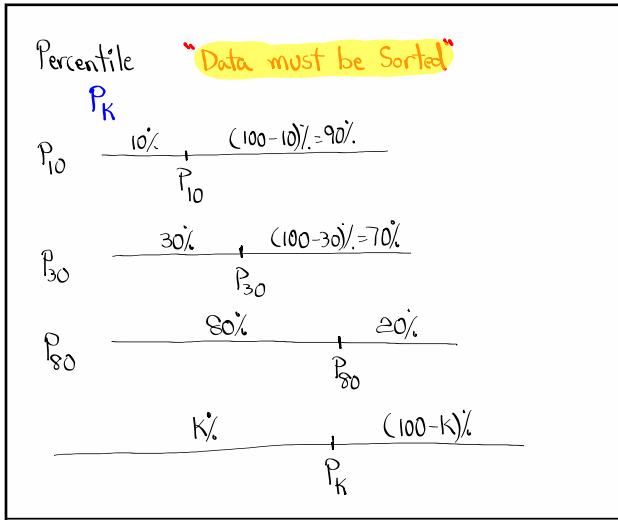 Percentile "Data must be Sorted"
P_K
10% (100-10)%=90%
P_10
P_10
30% (100-30)%=70%
P_30
P_30
80% 20%
P_80
P_80
K% (100-K)%
P_K